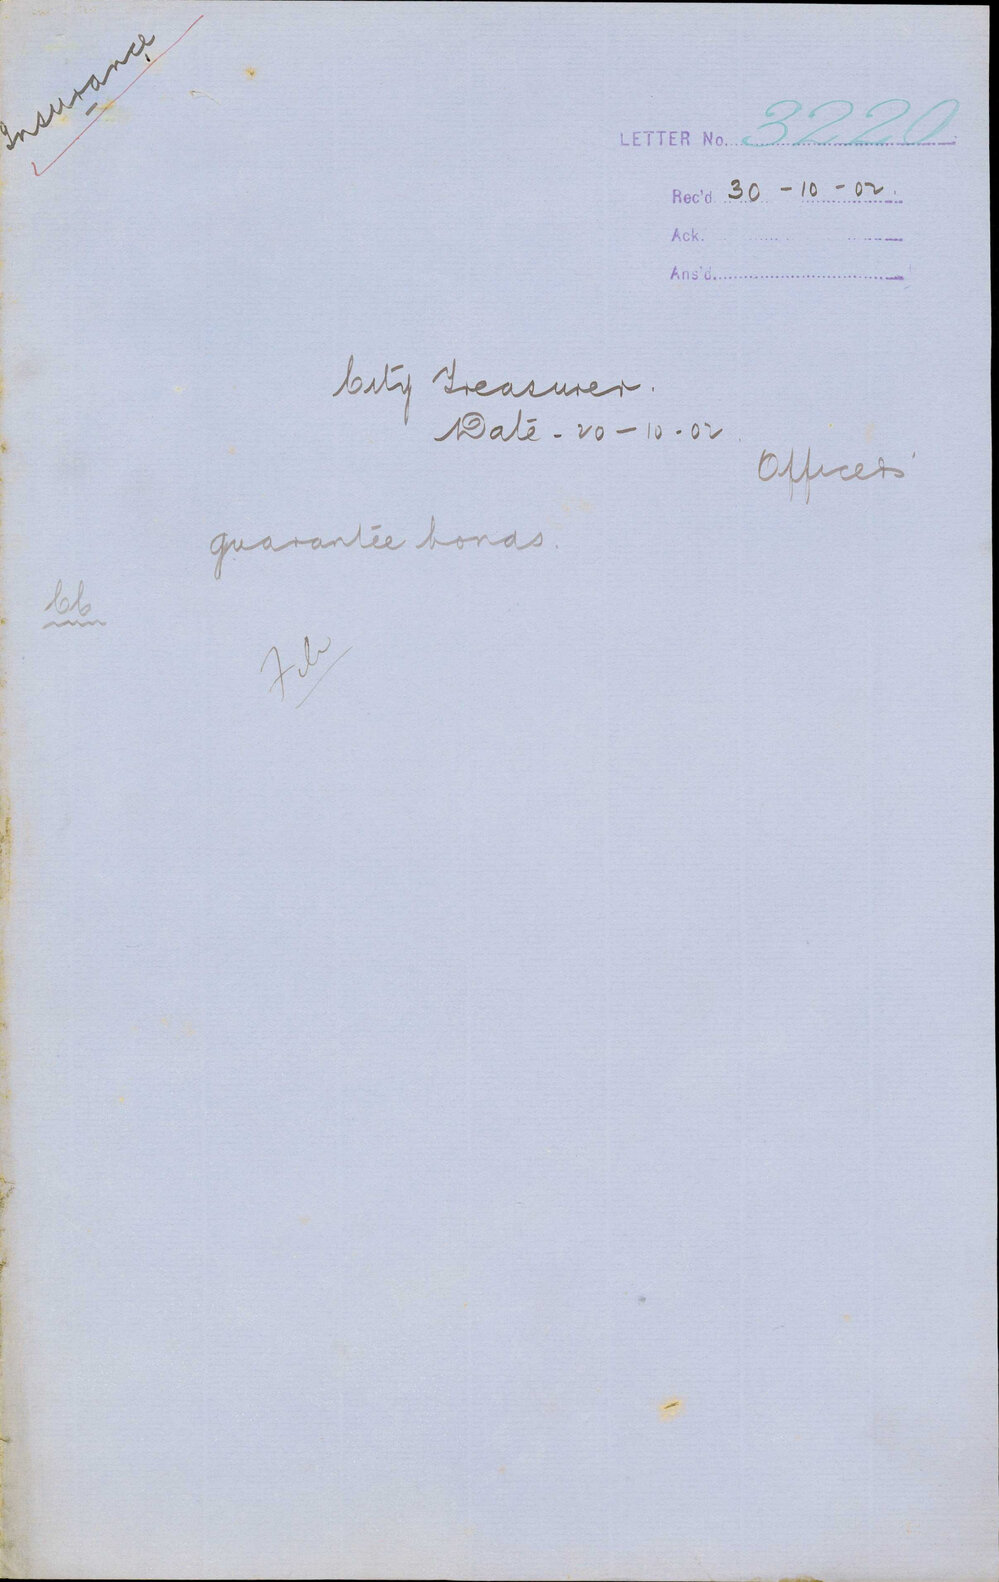 Insurance
LETTER No. 3220
Rec'd 30-10-02.
Ack.
Ans'd.
City Treasurer.
Date - 20-10-02
Officers'
guarantee bonds.
File